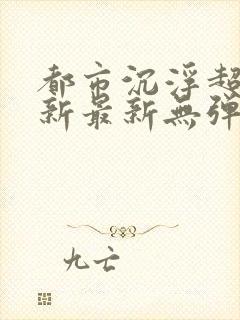 都市沉浮超
新最新無弹
九亡